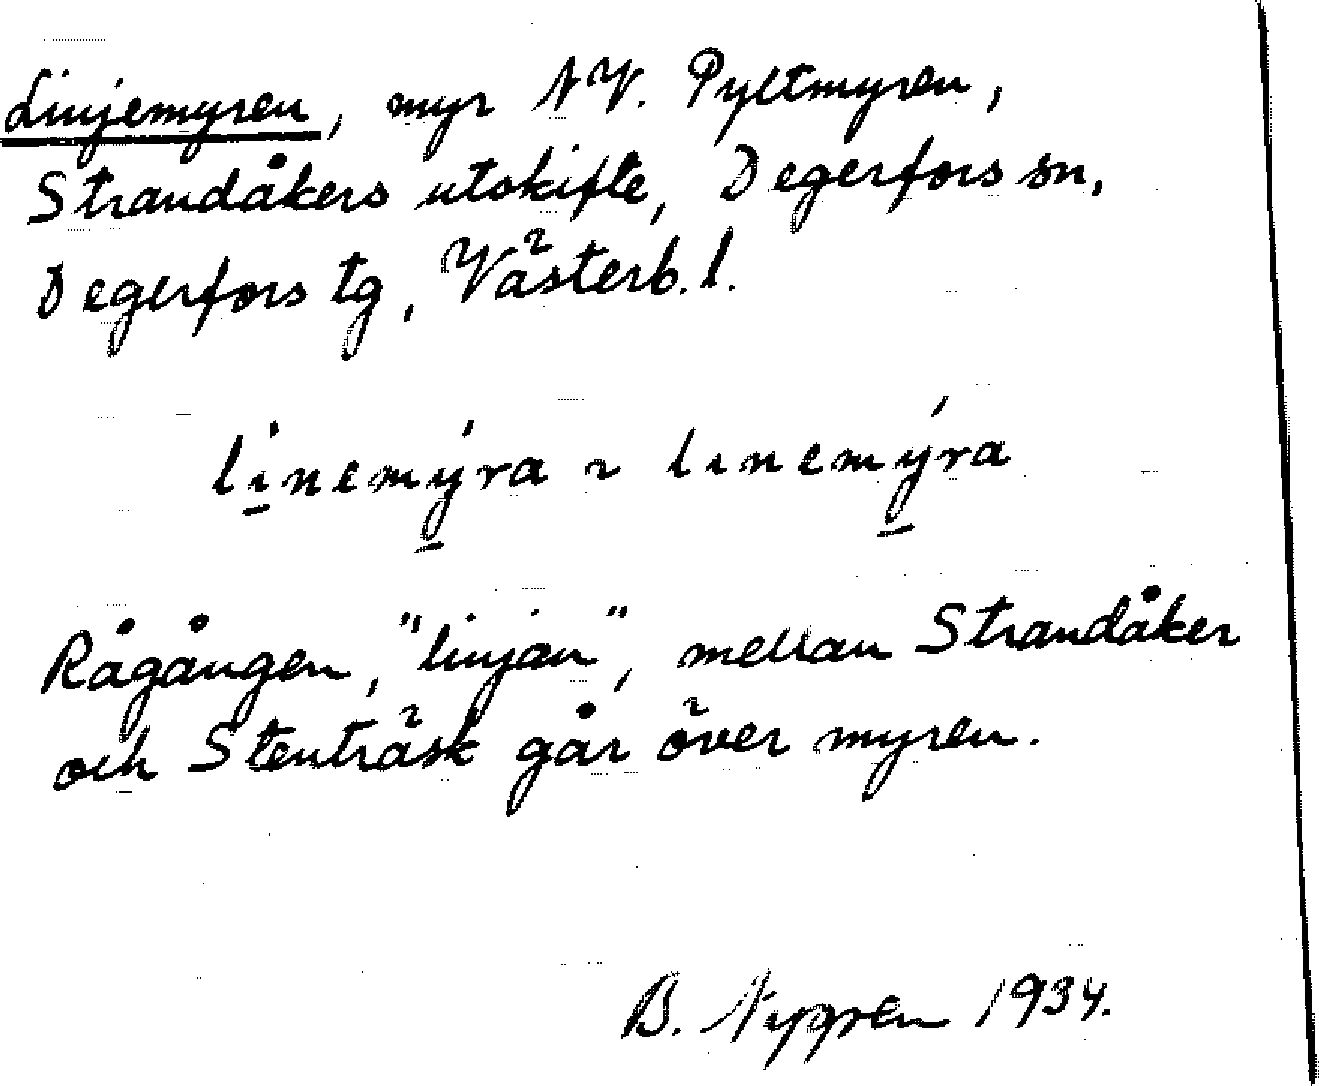 Linjemyren, myr NV. Pyltmyren,
Strandåkers utskifte, Degerfors sn,
Degerfors tg, Västerb. l.
li̱nemý̱ra ~ lınemý̱ra
Rågången, "linjan", mellan Strandåker
och Stenträsk går över myren.
B. Nygren 1934.